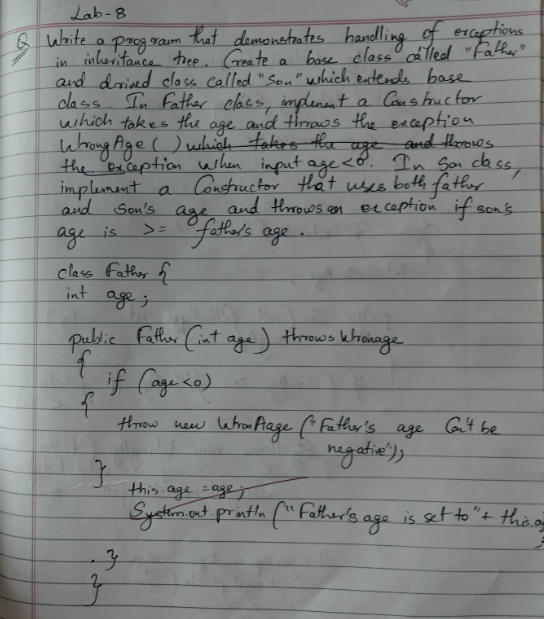 Lab-8
Q Write a program that demonstrates handling of exceptions
in inheritance tree. Create a base class called "Father"
and derived class called "Son" which extends base
class. In Father class, implement a Constructor
which takes the age and throws the exception
WrongAge ( ) which takes the age and throws
the exception when input age<0. In Son class,
implement a Constructor that uses both father
and Son's age and throws an exception if son's
age is >= father's age.
class Father {
int age;
public Father (int age) throws Wronage
{
if (age<0)
{
throw new WronAage ("Father's age Can't be
negative");
}
this.age = age;
System.out.println ("Father's age is set to "+ this.a
}
}